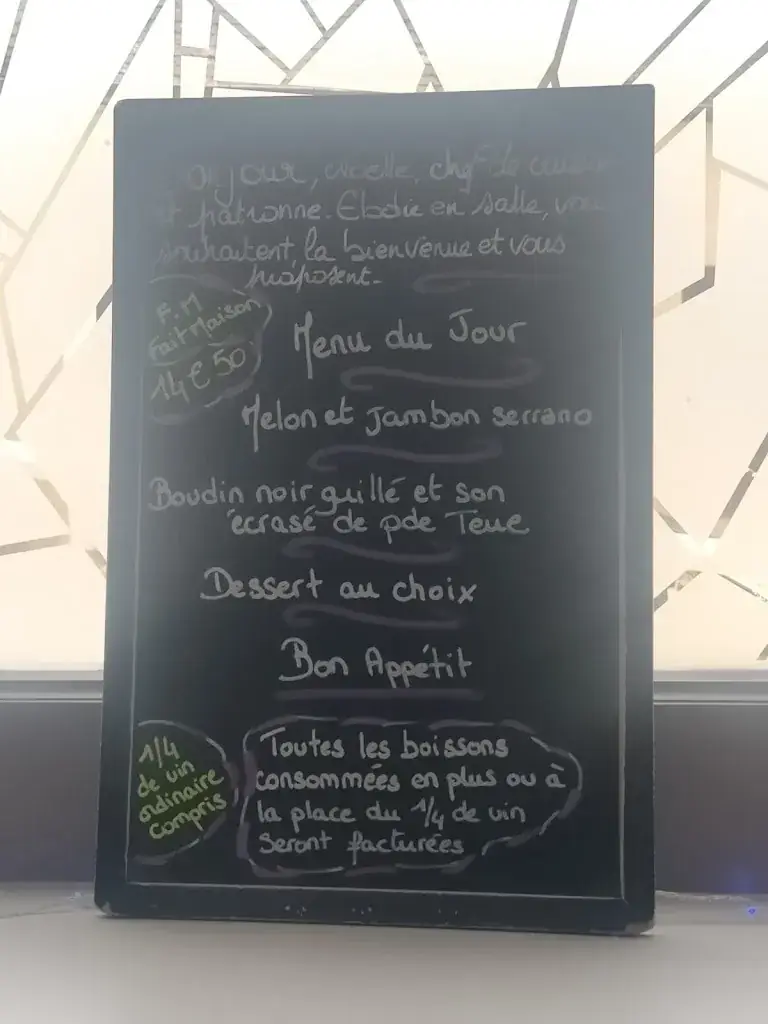 Bonjour, chef de
et patronne. Elodie en salle, vous
souhaitent, la bienvenue et vous
proposent.
F.M
Fait Maison
14€50
Menu du Jour
Melon et Jambon serrano
Boudin noir grillé et son
écrasé de pde Terre
Dessert au choix
Bon Appétit
1/4
de vin
ordinaire
compris
Toutes les boissons
consommées en plus ou à
la place du 1/4 de vin
seront facturées